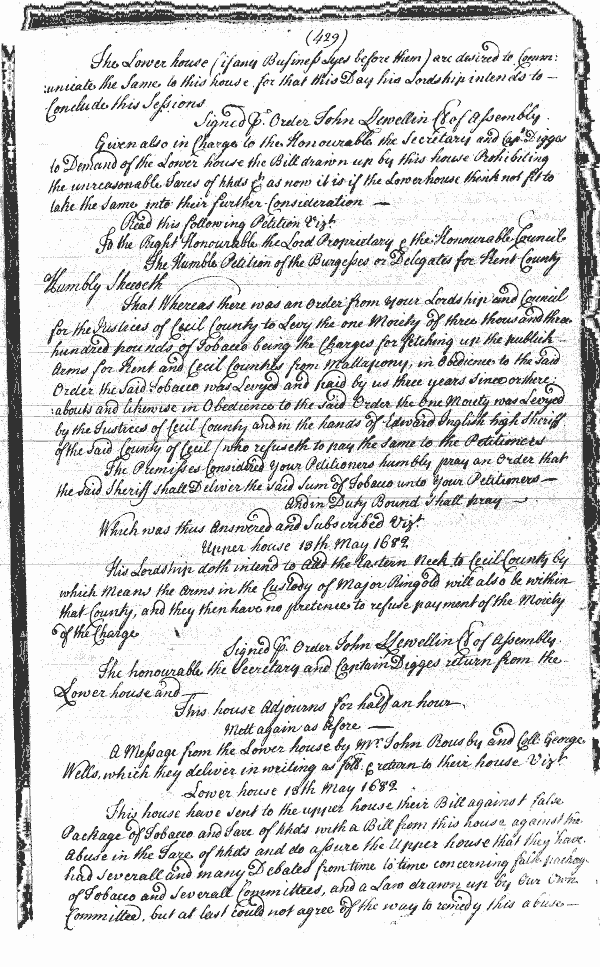 (429)
The Lower house (if any Business lyes before them) are desired to Comm:
unicate the Same to this house, for that this Day his Lordship intends to
Conclude this Sessions
Signed P. Order John Llewellin Cl of Assembly.
Given also in Charge to the Honourable the Secretary and Cap.t Digges
to Demand of the Lower house the Bill drawn up by this house Prohibiting
the unreasonable Tares of hhds &c as now it is if the Lower house think not fit to
take the Same into their further Consideration —
Read this following Petition Vizt.
To the Right Honourable the Lord Proprietary & the Honourable Council
The Humble Petition of the Burgesses or Delegates for Kent County
Humbly Sheweth
That Whereas there was an Order from your Lordship and Council
for the Justices of Cecil County to Levy the one Moiety of three thousand three
hundred pounds of Tobacco being the Charges for fetching up the publick
Arms for Kent and Cecil Counties from Mattapony, in Obedience to the Said
Order the Said Tobacco was Levyed and paid by us three years Since or there
abouts and likewise in Obedience to the Said Order the One Moiety was Levyed
by the Justices of Cecil County and in the hands of Edward Inglish high Sheriff
of the Said County of Cecil, who refuseth to pay the Same to the Petitioners
The Premisses Considred Your Petitioners humbly pray an Order that
the Said Sheriff shall Deliver the Said Sum of Tobacco unto Your Petitioners —
And in Duty Bound Shall pray —
Which was thus Answered and Subscribed Vizt
Upper house 13th May 1682
His Lordship doth intend to Add the Eastern Neck to Cecil County by
which Means the Arms in the Custody of Major Ringold will also be within
that County, and they then have no pretence to refuse payment of the Moiety
of the Charge
Signed P. Order John Llewellin Cl of Assembly.
The honourable the Secretary and Captain Digges return from the
Lower house and
This house Adjourns for half an hour
Mett again as before —
A Message from the Lower house by Mr John Rousby and Coll. George
Wells, which they deliver in writing as foll. & return to their house Vizt
Lower house 13th May 1682
This house have sent to the upper house their Bill against false
Package of Tobacco and Tare of hhds with a Bill from this house against the
Abuse in the Tare of hhds and do assure the Upper house that they have
had Severall and many Debates from time to time concerning false package
of Tobacco and Severall Committees, and a Law drawn up by Our Own
Committee, but at last could not agree of the way to remedy this abuse —